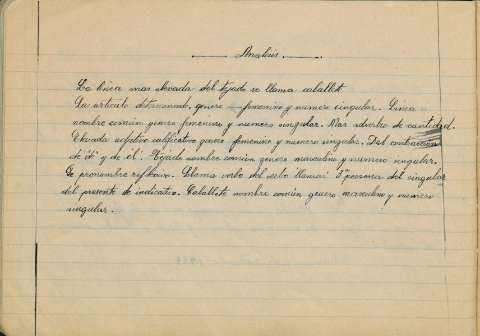 Análisis
La línea mas elevada del tejado se llama caballete
La artículo determinado, genero femenino y numero singular. Linea
nombre común genero femenino y numero singular. Mas adverbio de cantidad.
Elevada adjetivo calificativo genero femenino y numero singular. Del contracción
de "de" y de "el". Tejado nombre común genero masculino y número singular.
Se pronombre reflexivo. Llama verbo del verbo llamar 3ª persona del singular
del presente de indicativo. Caballete nombre común genero masculino y numero
singular.